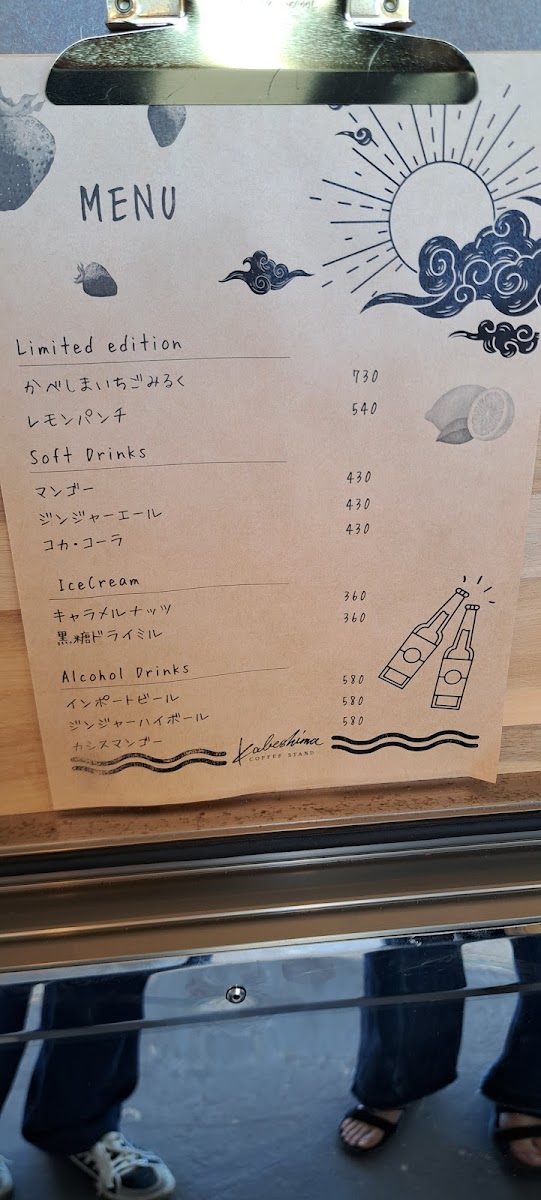 MENU
Limited edition
かべしまいちごみるく 730
レモンパンチ 540
Soft Drinks
マンゴー 430
ジンジャーエール 430
コカ・コーラ 430
IceCream
キャラメルナッツ 360
黒糖ドライミル 360
Alcohol Drinks
インポートビール 580
ジンジャーハイボール 580
カシスマンゴー 580
Kabeshima
COFFEE STAND